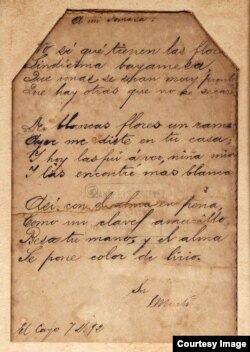 Yo sé qué tienen las flo
Lindísima bayamesa,
Que unas se secan muy pront
Que hay otras que no se secan

De blancas flores un ramo
Ayer me diste en tu casa,
Y hoy las fui á ver, niña mía
Y las encontré mas blanca

Así, con el alma en pena,
Como un clavel amarillo,
Besa tu mano, y el alma
Se pone color de lirio.

Su
J Martí
El Cayo 7 D/92
Courtesy Image